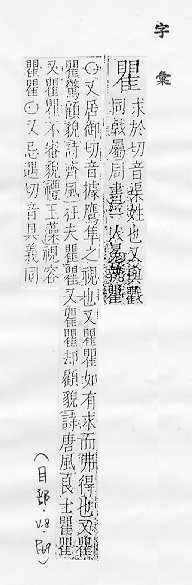 字彙
瞿 求於切音渠姓也又與戵
同戟屬周書一人冕執瞿
○又居御切音據鷹隼之視也又瞿瞿如有求而弗得也又瞿
瞿驚顧貌詩齊風狂夫瞿瞿又瞿瞿却顧貌詩唐風良士瞿瞿
又瞿瞿不審貌禮玉藻視容
瞿瞿○又忌遇切音具義同
(目部.V.8.